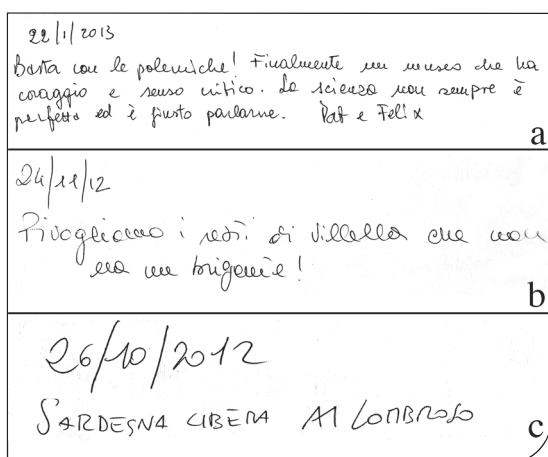 22/1/2013
Basta con le polemiche! Finalmente un museo che ha
coraggio e senso critico. La scienza non sempre è
perfetta ed è giusto parlarne. Pat e Felix
a
24/11/12
Rivogliamo i resti di Villella che non
era un brigante!
b
26/10/2012
SARDEGNA LIBERA
LOMBROSO
c